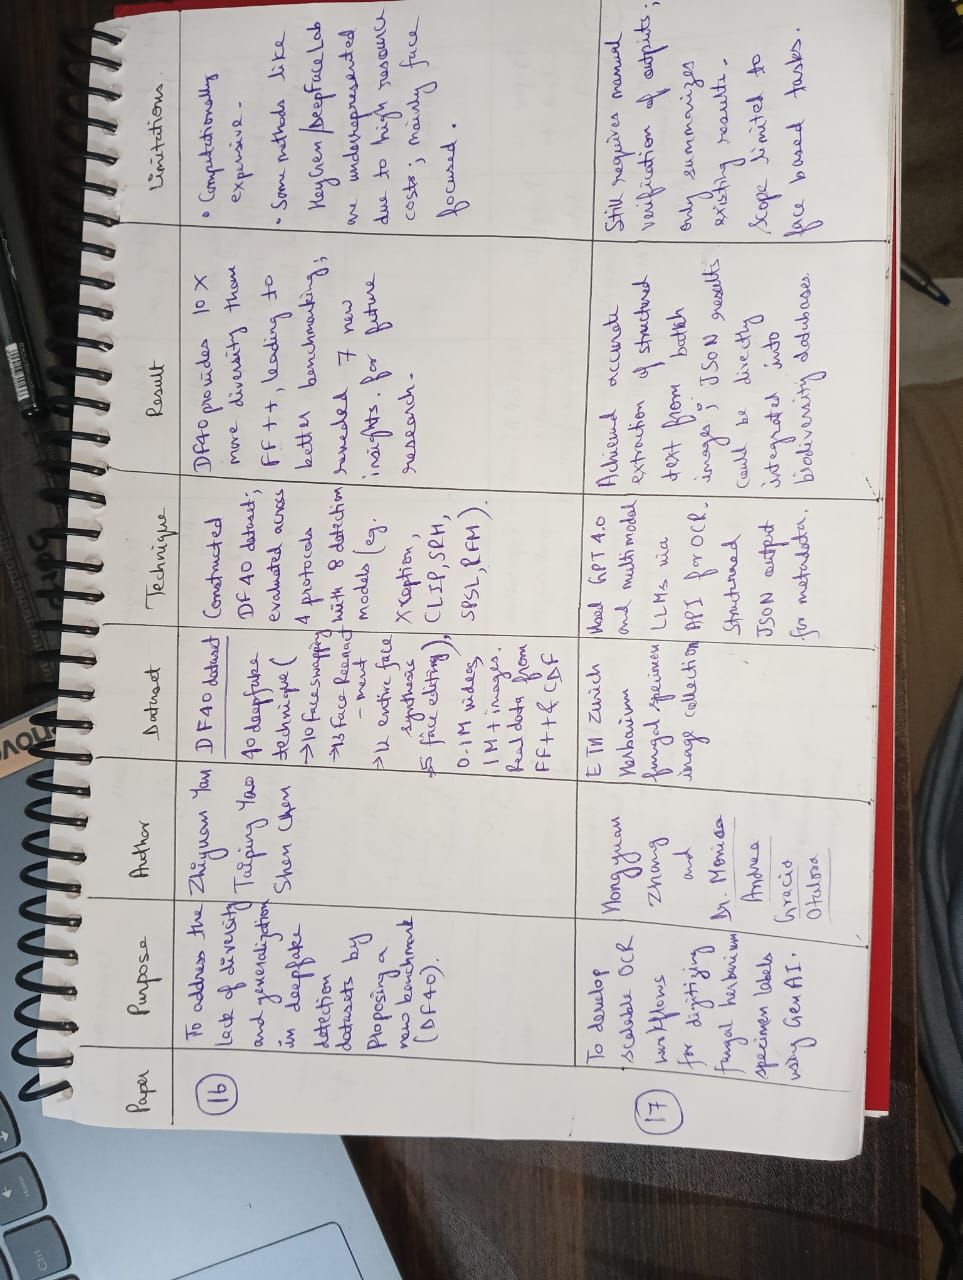 Paper
Purpose
Author
Dataset
Technique
Result
Limitations
16
To address the
lack of diversity
and generalization
in deepfake
detection
datasets by
Proposing a
new benchmark
(DF40).
Zhiyuan Yan
Taiping Yao
Shen Chen
DF40 dataset
40 deepfake
technique (
→10 faceswapping
→13 Face Reenact
- ment
→12 entire face
synthesis
→5 face editing),
0.1M videos
1M+ images.
Real data from
FF++ & CDF
Constructed
DF40 dataset;
evaluated across
4 protocols
with 8 detection
models (eg.
Xception,
CLIP, SRM,
SPSL, RFM).
DF40 provides 10X
more diversity than
FF++, leading to
better benchmarking;
revealed 7 new
insights. for future
research.
• Computationally
expensive.
• Some methods like
HeyGen/DeepFaceLab
are underrepresented
due to high resource
costs; mainly face
focused.
17
To develop
scalable OCR
workflows
for digitizing
fungal herbarium
specimen labels
using GenAI.
Hongyuan
Zhang
and
Dr. Monica
Andrea
Gracia
Otalora
ETH Zurich
Herbarium
fungal specimen
image collection
Used GPT 4.0
and multimodal
LLMs via
API for OCR.
Structured
JSON output
for metadata.
Achieved accurate
extraction of structured
text from batch
images; JSON results
could be directly
integrated into
biodiversity databases.
Still requires manual
verification of outputs;
only summarizes
existing results.
Scope limited to
face based tasks.
Ctrl